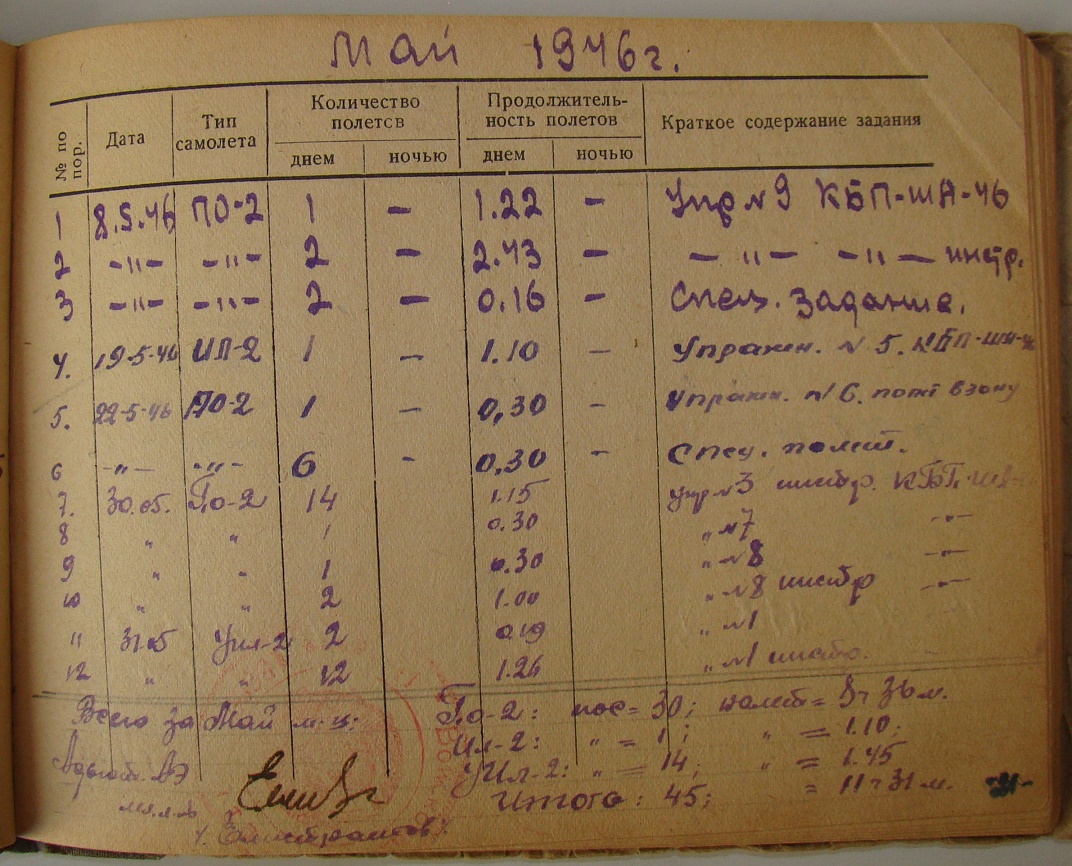 Май 1946г.
№ по пор. Дата Тип самолета Количество полетов Продолжитель-ность полетов Краткое содержание задания
днем ночью днем ночью
1 8.5.46 ПО-2 1 – 1.22 – Упр №9 КБП-ША-46
2 -"- -"- 2 – 2.43 – -"- -"- инстр.
3 -"- -"- 2 – 0.16 – Спец. задание.
4. 19-5-46 ИЛ-2 1 – 1.10 – Упражн. № 5. КБП-ША-46
5. 22-5-46 ПО-2 1 – 0,30 – Упражн. №6. полет в зону
6 -"- -"- 6 – 0,30 – Спец. полет.
7. 30.05. По-2 14 1.15 Упр №3 инстр. КБП-ША
8 " " 1 0.30 " №7 -"-
9 " " 1 0.30 " №8 -"-
10 " " 2 1.00 " №8 инстр -"-
11 31.05 Уил-2 2 0.19 " №1
12 " " 12 1.26 " №1 инстр.
Всего за Май м-ц: По-2: пос = 30; налет = 8ч 36м.
Ил-2: " = 1; " = 1.10;
Адьют. АЭ УИл-2: " = 14; " = 1.45
мл. л-т Итого: 45; = 11ч 31м.
/Елистратов/